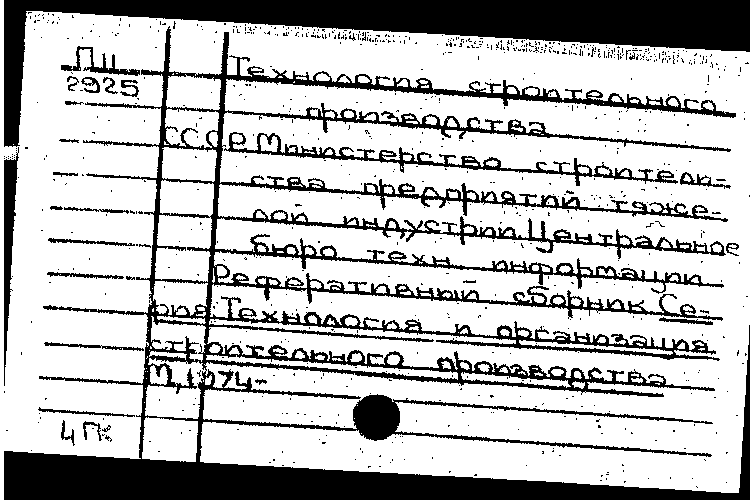 П11
2925
Технология строительного
производства
СССР. Министерство строитель-
ства предприятий тяже-
лой индустрии. Центральное
бюро техн. информации
Реферативный сборник. Се-
рия: Технология и организация
строительного производства
М., 1974-
4 ГК